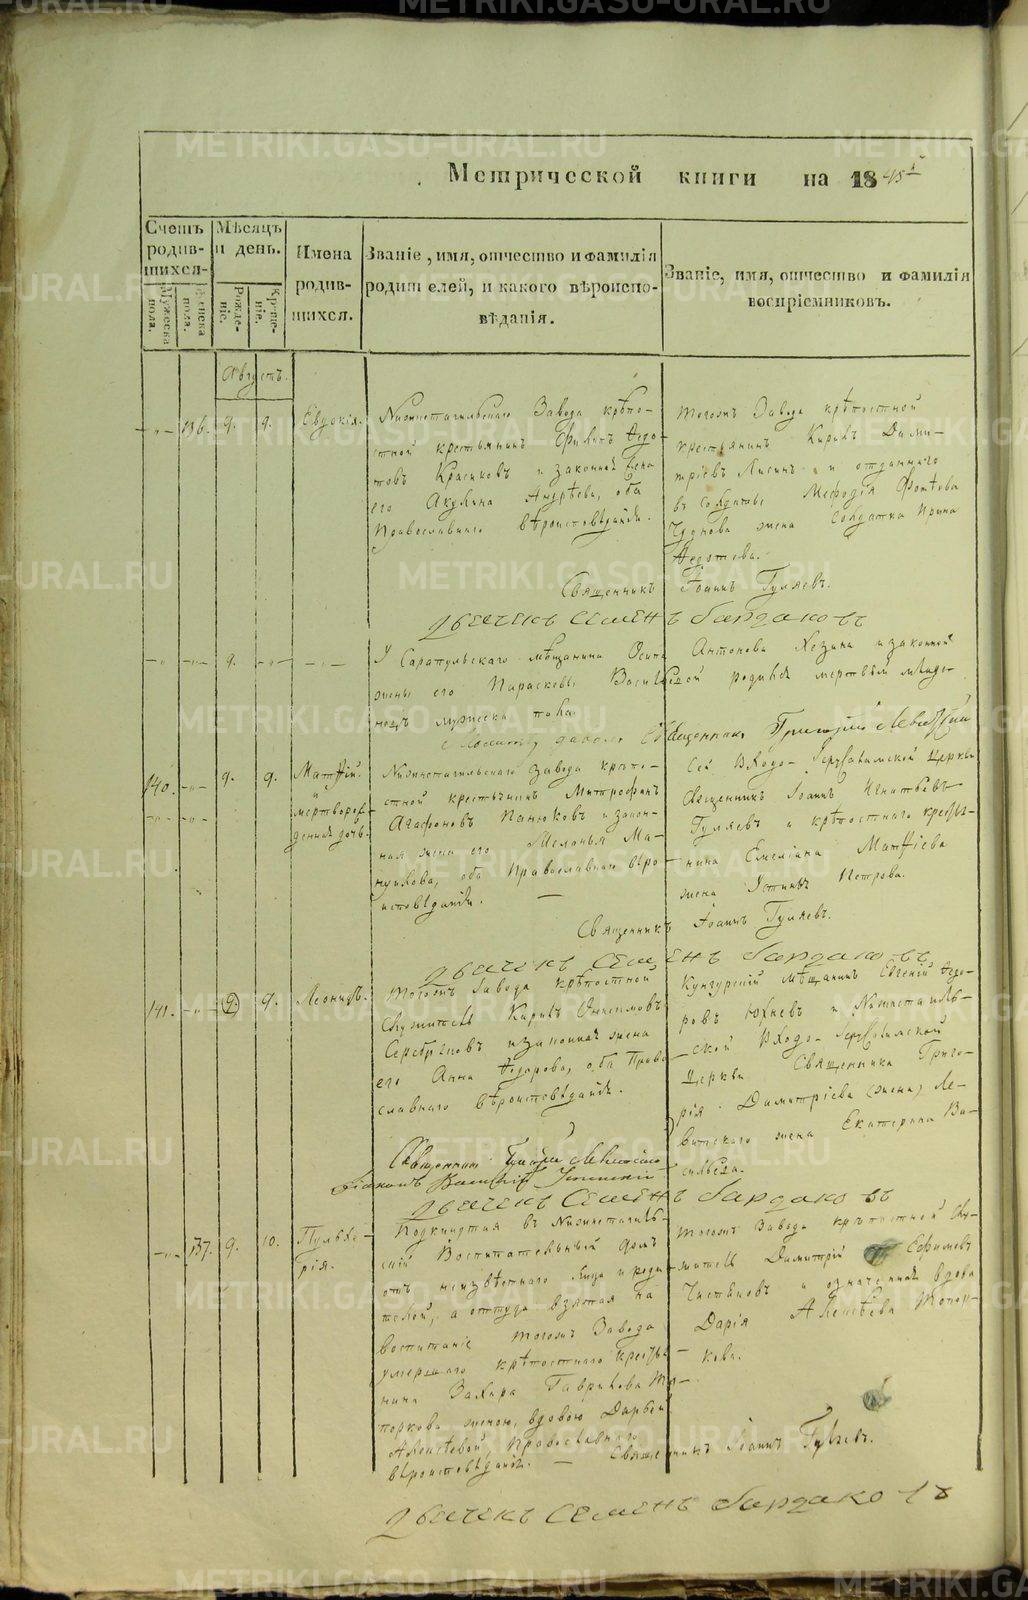 Метрической книги на 1845 г
Счетъ родившихся.
Мужеска пола.
Женска пола.
Мѣсяцъ и день.
Рожденіе.
Крещеніе.
Имена родившихся.
Званіе, имя, отчество и фамилія родителей, и какого вѣроисповѣданія.
Званіе, имя, отчество и фамилія воспріемниковъ.
Августъ.
136. 9. 9. Евдокія.
Нижнетагильскаго Завода крѣпо-
стной крестьянинъ Филипъ Ѳедо-
товъ Красиковъ и законная жена
его Акулина Андрѣева, оба
Православнаго вѣроисповѣданія.
тогожъ Завода крѣпостной
крестьянинъ Кирилъ Дими-
тріевъ Лисинъ и отданнаго
въ Солдаты Мефодія Фотѣева
Чуднова жена солдатка Ирина
Ѳедотова.
Священникъ Іоаннъ Гуляевъ.
дьячекъ Семенъ Бардаковъ
9.
У Сарапульскаго мѣщанина Осипа Антонова Хезина и законной
жены его Параскевы Васильевой родился мертвый младе-
нецъ мужеска пола
Молитву давалъ Священникъ Григорій Левитскій
140. 9. 9. Матѳій.
и
мертворож-
денная дочь.
Нижнетагильскаго завода крѣпо-
стной крестьянинъ Митрофанъ
Агафоновъ Панюковъ и закон-
ная жена его Меланья Ма-
нуилова, оба Православнаго вѣро-
исповѣданія.
Сей Входо-Іерусалимской Церкви
Священникъ Іоаннъ Игнатьевъ
Гуляевъ и крѣпостнаго крестья-
нина Емеліана Матѳіева
жена Устинья Петрова.
Священникъ Іоаннъ Гуляевъ.
дьячекъ Семенъ Бардаковъ
141. 9. 9. Леонидъ.
тогожъ завода крѣпостной
служитель Кирилъ Онисимовъ
Серебряковъ и законная жена
его Анна Ѳедорова, оба Право-
славнаго вѣроисповѣданія.
Кунгурскій мѣщанинъ Евгеній Ѳедо-
ровъ Юхневъ и Нижнетагиль-
ской Входо-Іерусалимской
Церкви Священника Григо-
рія Димитріева (жена) Ле-
витскаго жена Екатерина Ва-
сильева.
Священникъ Григорій Левитскій
Діаконъ Василій
дьячекъ Семенъ Бардаковъ
137. 9. 10. Пульхе-
рія.
Подкинутая въ Нижнетагиль-
скій Воспитательный домъ
отъ неизвѣстнаго лица и роди-
телей, а оттуда взятая на
воспитаніе тогожъ Завода
умершаго крѣпостнаго крестья-
нина Захара Гаврилова То-
поркова женою, вдовою Дарьей
Алексѣевой, Православнаго
вѣроисповѣданія.
тогожъ Завода крѣпостной слу-
житель Димитрій Ефимовъ
Чистяковъ и означенная вдова
Дарія Алексѣева Топор-
кова.
Священникъ Іоаннъ Гуляевъ.
дьячекъ Семенъ Бардаковъ
METRIKI.GASO-URAL.RU